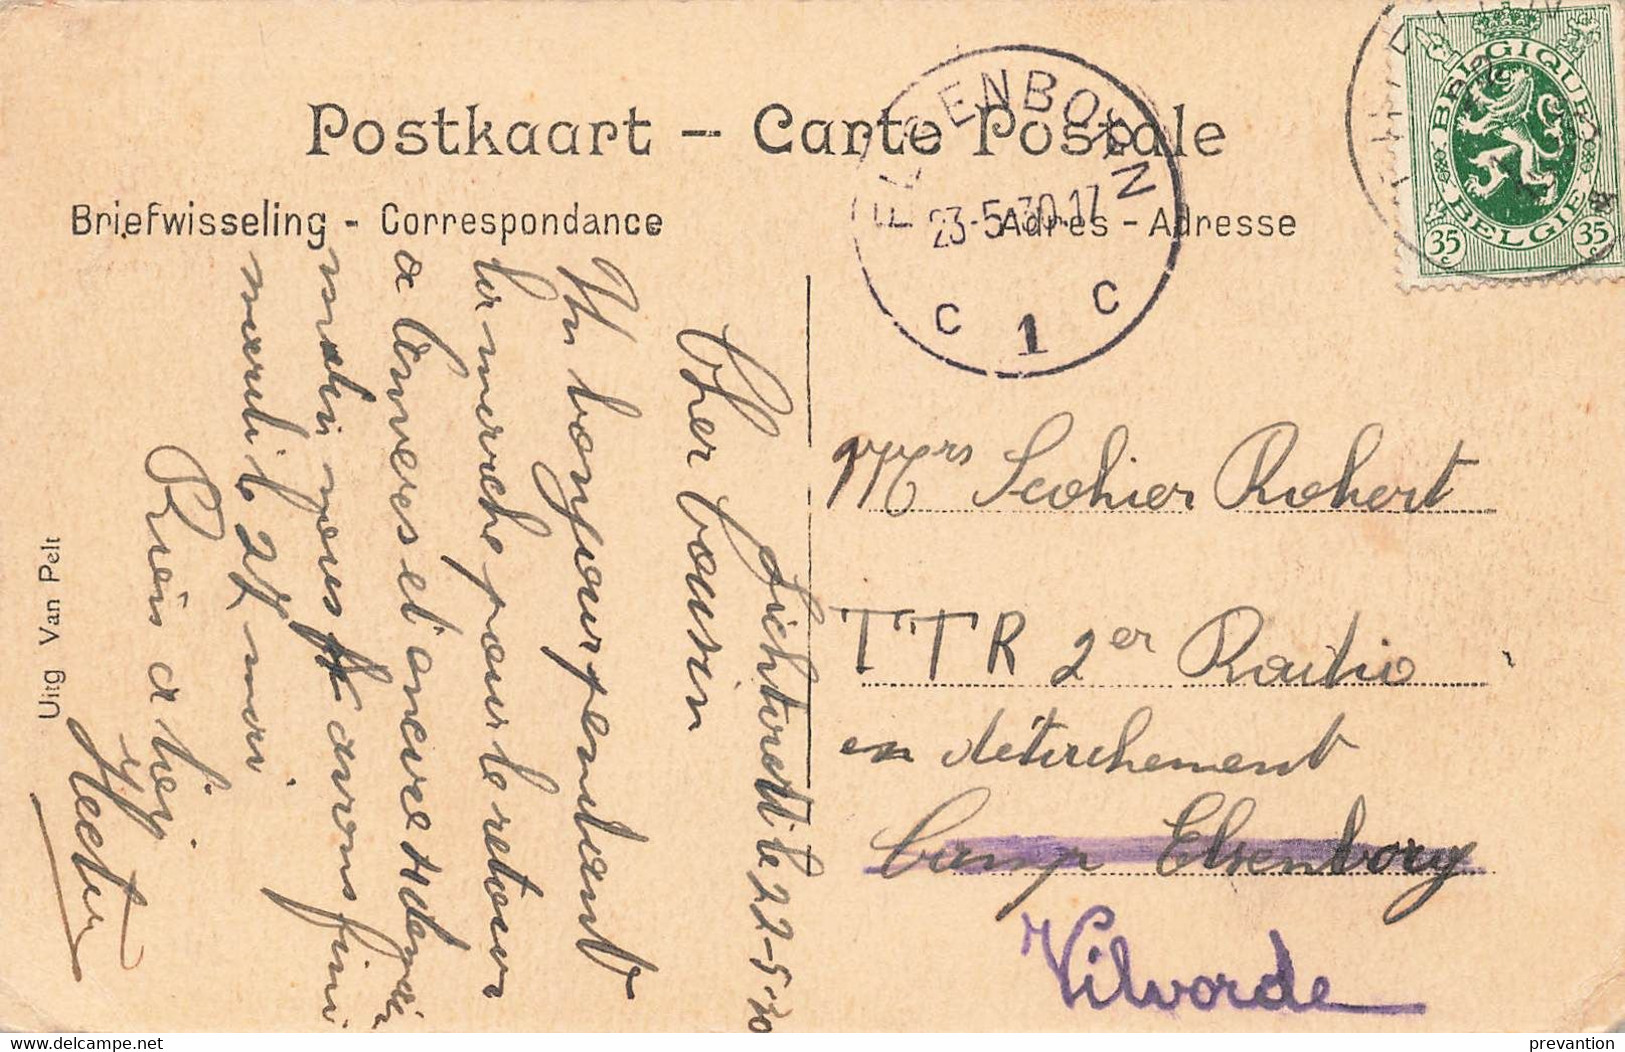 Postkaart – Carte Postale
Briefwisseling - Correspondance
Adres - Adresse
ELSENBORN
23-5.30.17
C 1 C
BELGIQUE
BELGIE
35c 35c
Lichtvert le 22-5-30
Cher Cousin
Un bonjour pendant
la marche pour le retour
a Anvers et encore demain
matin nous avons fini
mardi le 27 mai.
Rien a
Hector
Uitg Van Pelt
Mrs Scohier Robert
TTR 2er Radio
en détachement
Camp Elsenborg
Vilvorde
delcampe.net
prevantion